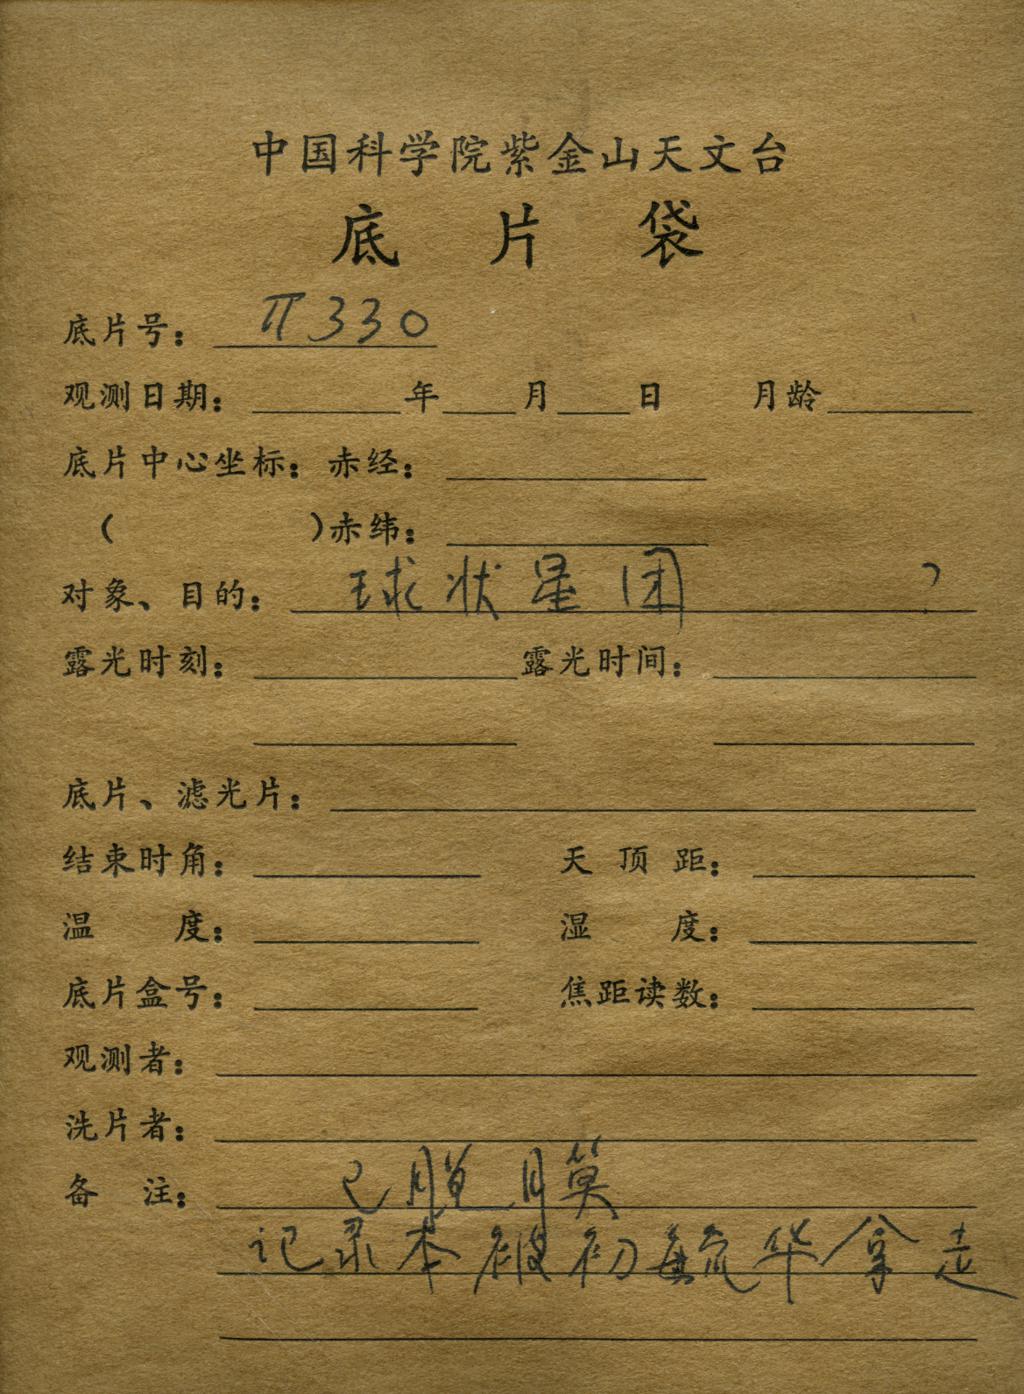 中国科学院紫金山天文台
底片袋
底片号： π330
观测日期： 年 月 日 月龄
底片中心坐标：赤经：
（ ）赤纬：
对象、目的： 球状星团 ?
露光时刻： 露光时间：
底片、滤光片：
结束时角： 天顶距：
温度： 湿度：
底片盒号： 焦距读数：
观测者：
洗片者：
备注： 已脱膜
记录本被初毓华拿走